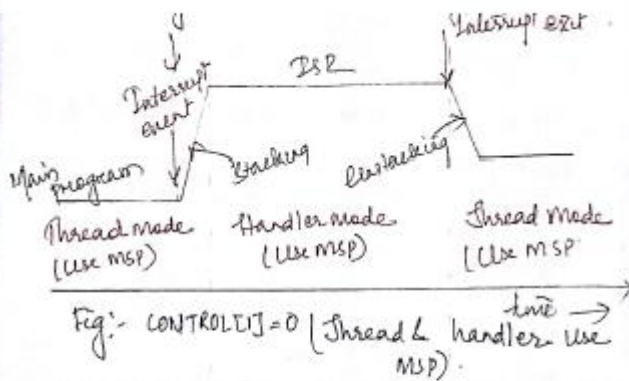 Interrupt exit
ISR
Interrupt
event
Stacking
Unstacking
Main
program
Thread mode
(Use MSP)
Handler mode
(Use MSP)
Thread Mode
(Use MSP
time →
Fig:- CONTROL[1]=0 (Thread & handler use
MSP).